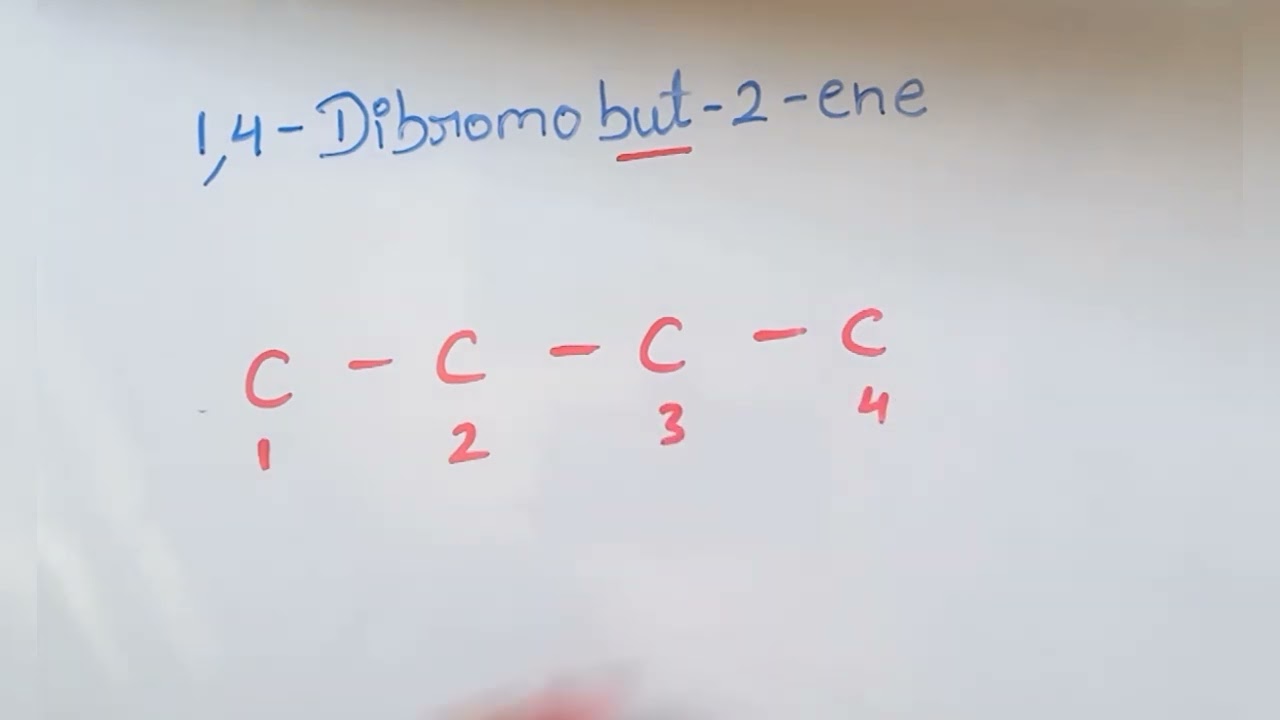 1,4-Dibromobut-2-ene
C - C - C - C
1 2 3 4